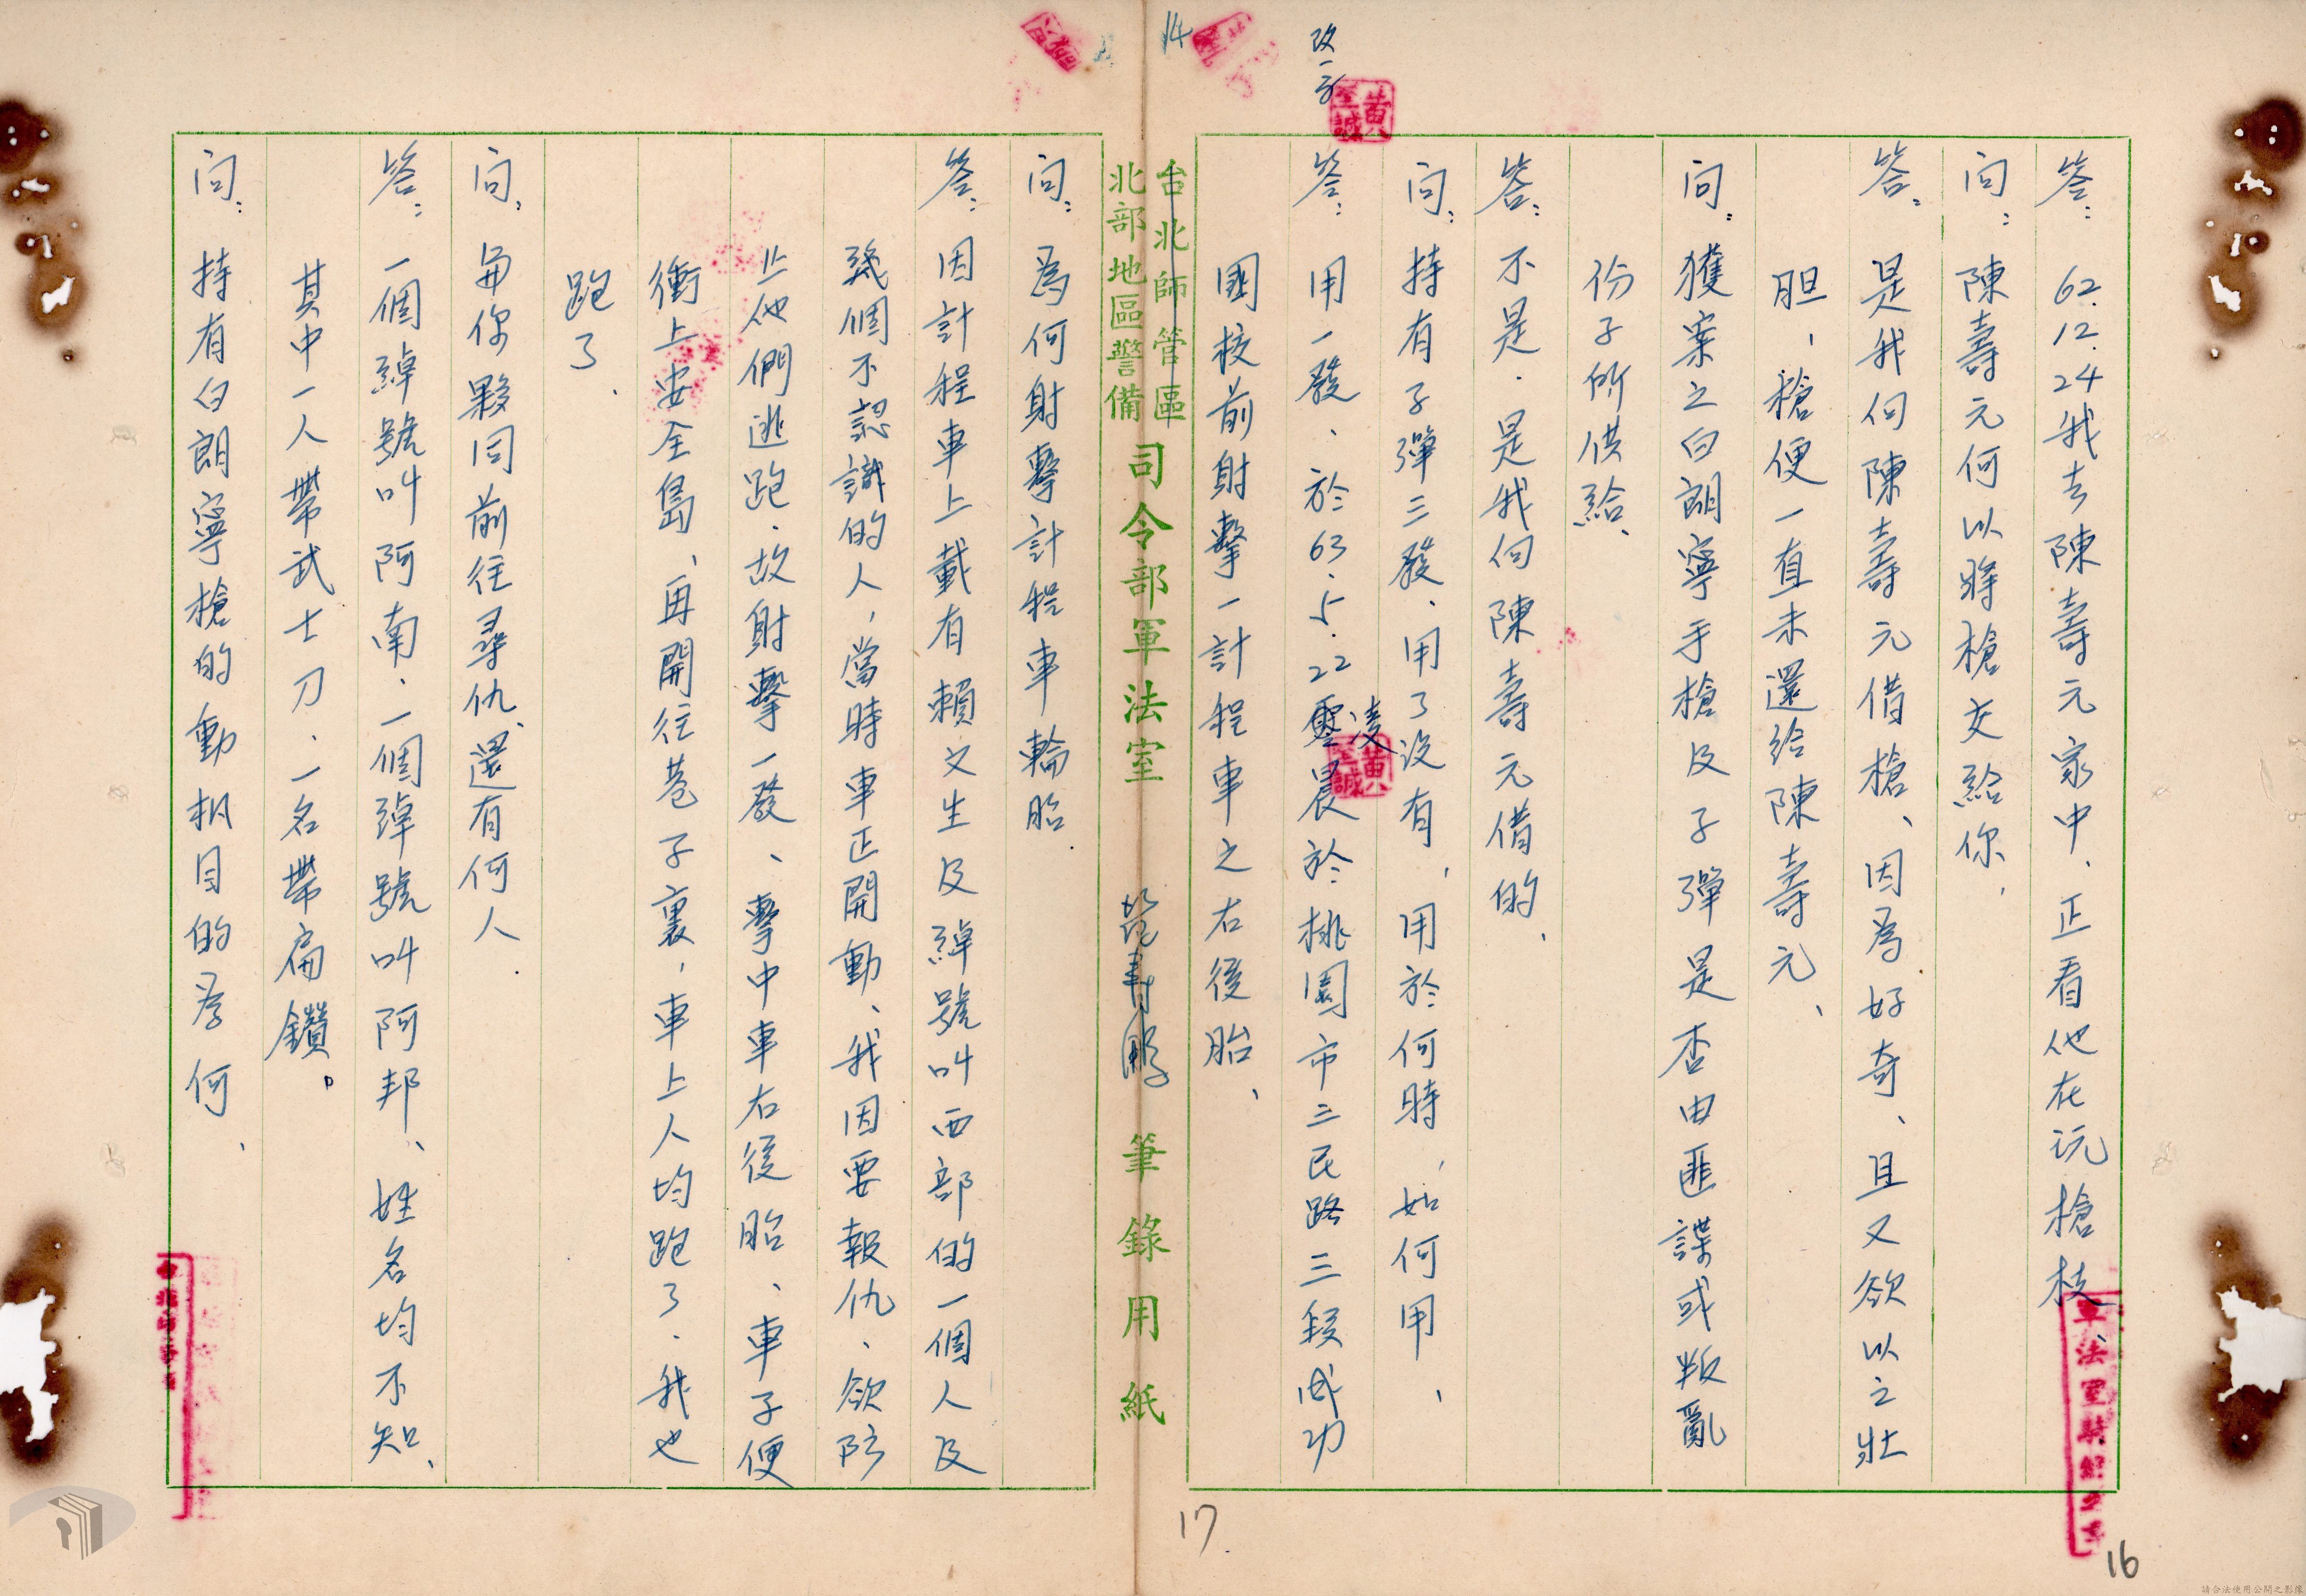 14
改一字
黃至誠
答：62.12.24我去陳壽元家中、正看他在玩槍枝、
問：陳壽元何以將槍交給你、
答：是我向陳壽元借槍、因為好奇、且又欲以之壯
胆、槍便一直未還給陳壽元、
問：獲案之白朗寧手槍及子彈是否由匪諜或叛亂
份子所供給、
答：不是．是我向陳壽元借的、
問：持有子彈三發、用了沒有、用於何時、如何用、
答：用一發、於63.5.22凌晨於桃園市三民路三段成功
國校前射擊一計程車之右後胎、
黃至誠
台北師管區
北部地區警備
司令部軍法室
筆錄用紙
問：為何射擊計程車輪胎．
答：因計程車上載有賴文生及綽號叫西部的一個人及
幾個不認識的人，當時車正開動、我因要報仇、欲防
止他們逃跑．故射擊一發、擊中車右後胎、車子便
衝上安全島、再開往巷子裏，車上人均跑了．我也
跑了．
問：與你夥同前往尋仇、還有何人．
答：一個綽號叫阿南．一個綽號叫阿邦、姓名均不知、
其中一人帶武士刀．一名帶扁鑽。
問：持有白朗寧槍的動機目的為何、
17
16
請合法使用公開之影像